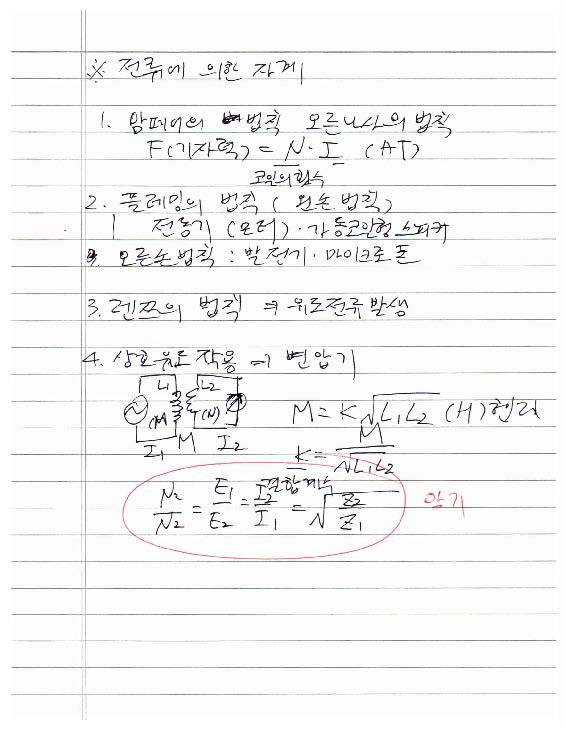 ※ 전류에 의한 자계
1. 암페어의 법칙 오른나사의 법칙
F(기자력) = N · I (AT)
코일의 횟수
2. 플레밍의 법칙 (왼손법칙)
전동기 (모터) · 가동코일형 스피커
오른손법칙 : 발전기 · 마이크로폰
3. 렌쯔의 법칙 ⇒ 유도전류 발생
4. 상호유도 작용 → 변압기
L1 L2
(N) (N)
I1 M I2
M = K√L1L2 (H) 헨리
k = M/√L1L2
결합계수
N2/N2 = E1/E2 = I2/I1 = √Z2/Z1 암기